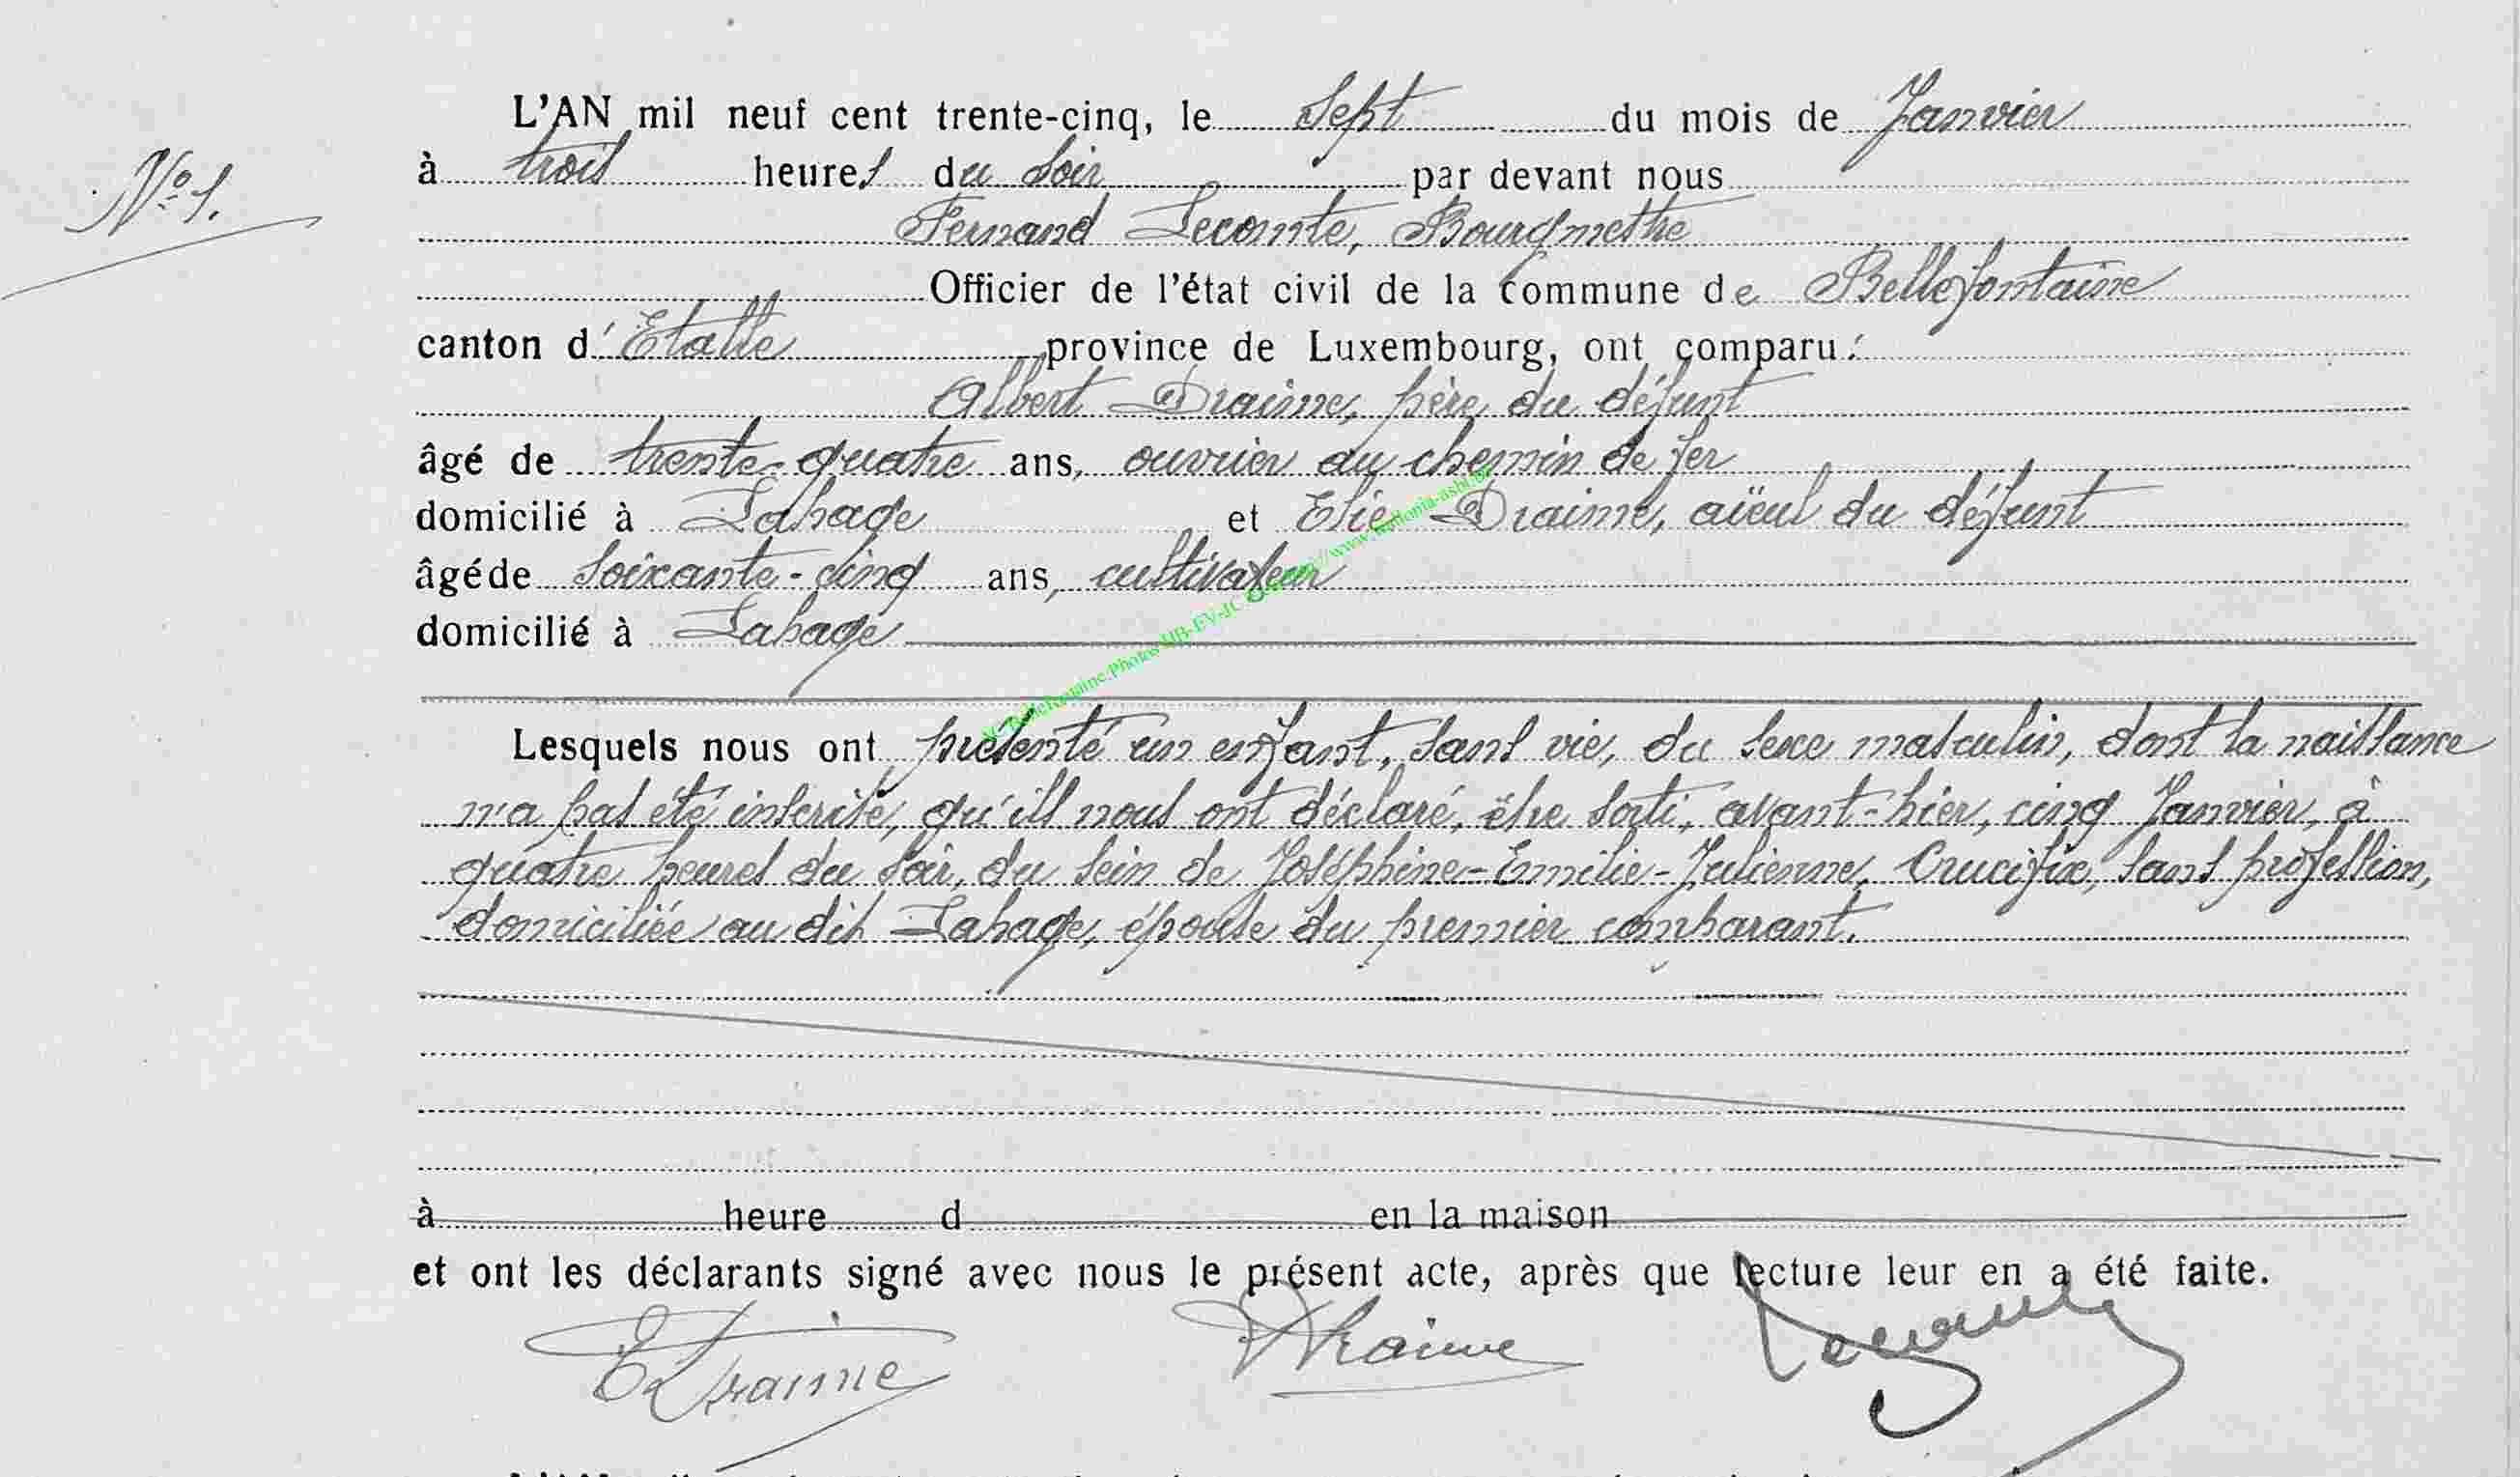 L'AN mil neuf cent trente-cinq, le Sept du mois de Janvier
N° 1.
à trois heures du soir par devant nous
Fernand Lecomte, Bourgmestre
Officier de l'état civil de la commune de Bellefontaine
canton d'Etalle province de Luxembourg, ont comparu :
Albert Draime, père du défunt
âgé de trente-quatre ans, ouvrier au chemin de fer
domicilié à Lahage et Elie Draime, aïeul du défunt
âgé de soixante-cinq ans, cultivateur
domicilié à Lahage
Lesquels nous ont présenté un enfant, sans vie, du sexe masculin, dont la naissance
n'a pas été inscrite, qu'ils nous ont déclaré, être sorti, avant-hier, cinq Janvier, à
quatre heures du soir, du sein de Joséphine-Emilie-Julienne, Crucifix, sans profession,
domiciliée au dit Lahage, épouse du premier comparant.
à heure d en la maison
et ont les déclarants signé avec nous le présent acte, après que lecture leur en a été faite.
E Draime Draime Lecomte